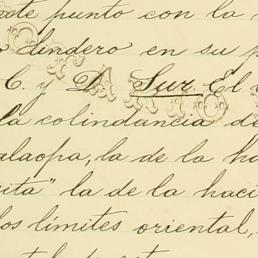 este punto con la
lindero en su p
C. y D. Sur. El
la colindancia de
alaopa, la de la ha
ita" la de la haci
los límites oriental,